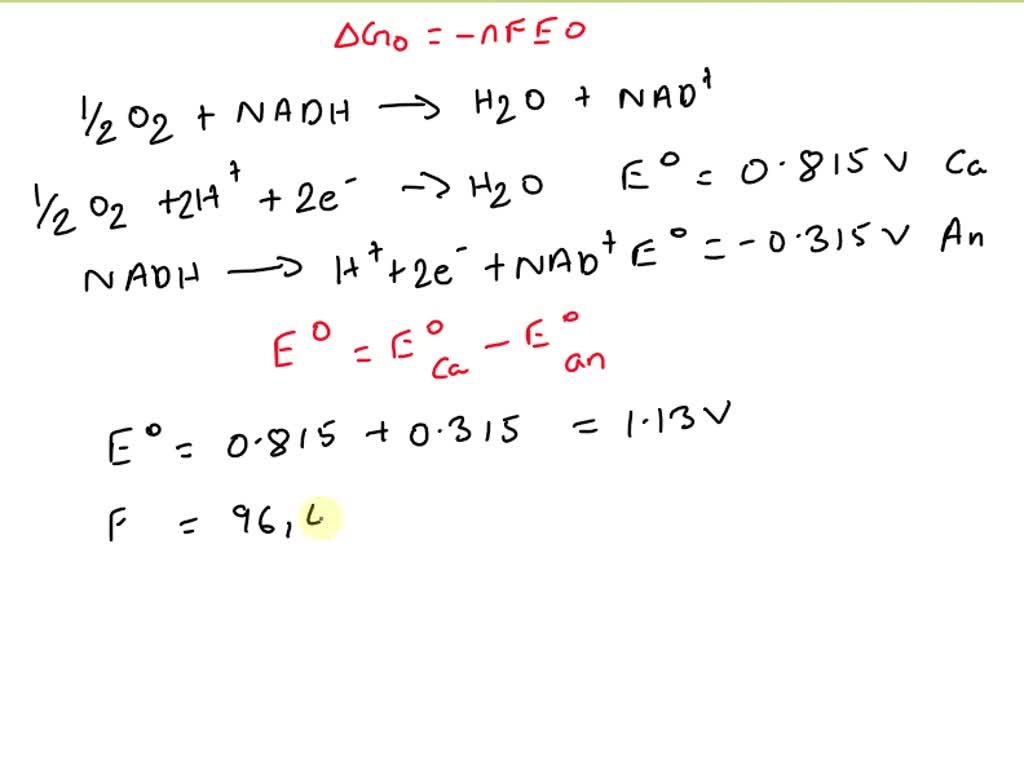 ΔG₀ = -nFE0
1/2 O₂ + NADH → H₂O + NAD⁺
1/2 O₂ + 2H⁺ + 2e⁻ → H₂O E⁰ = 0.815 V Ca
NADH → H⁺ + 2e⁻ + NAD⁺ E⁰ = -0.315 V An
E⁰ = E⁰ca - E⁰an
E⁰ = 0.815 + 0.315 = 1.13 V
F = 96,